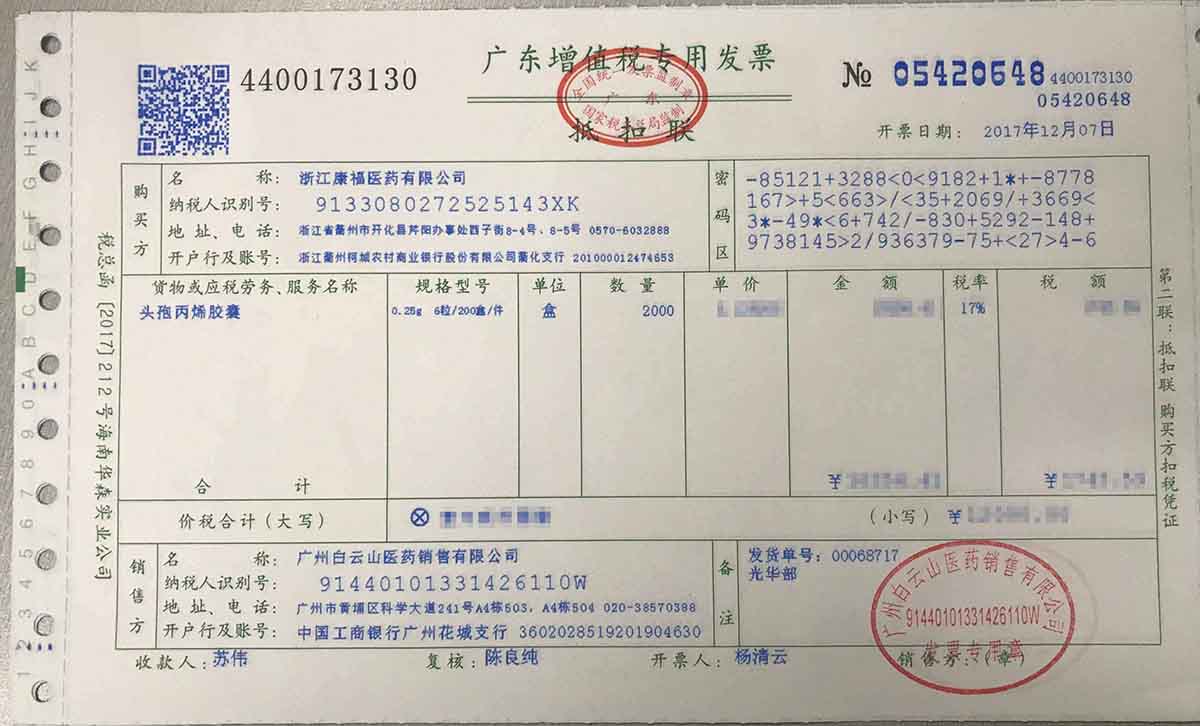 4400173130
广东增值税专用发票
全国统一发票监制章
广东
国家税务总局监制
抵扣联
№ 05420648
4400173130
05420648
开票日期: 2017年12月07日
购买方
名称: 浙江康福医药有限公司
纳税人识别号: 9133080272525143XK
地址、电话: 浙江省衢州市开化县芹阳办事处西子街8-4号、8-5号 0570-6032888
开户行及账号: 浙江衢州柯城农村商业银行股份有限公司衢化支行 201000012474653
密码区
-85121+3288<0<9182+1*+-8778
167>+5<663>/<35+2069/+3669<
3*-49*<6+742/-830+5292-148+
9738145>2/936379-75+<27>4-6
货物或应税劳务、服务名称 规格型号 单位 数量 单价 金额 税率 税额
头孢丙烯胶囊 0.25g 6粒/200盒/件 盒 2000 17%
合计 ¥ ¥
价税合计(大写) ⊗ (小写) ¥
销售方
名称: 广州白云山医药销售有限公司
纳税人识别号: 91440101331426110W
地址、电话: 广州市黄埔区科学大道241号A4栋503, A4栋504 020-38570398
开户行及账号: 中国工商银行广州花城支行 3602028519201904630
备注
发货单号: 00068717
光华部
收款人: 苏伟 复核: 陈良纯 开票人: 杨清云 销售方:(章)
广州白云山医药销售有限公司
91440101331426110W
发票专用章
税总函〔2017〕212号海南华森实业公司
第二联:抵扣联 购买方扣税凭证